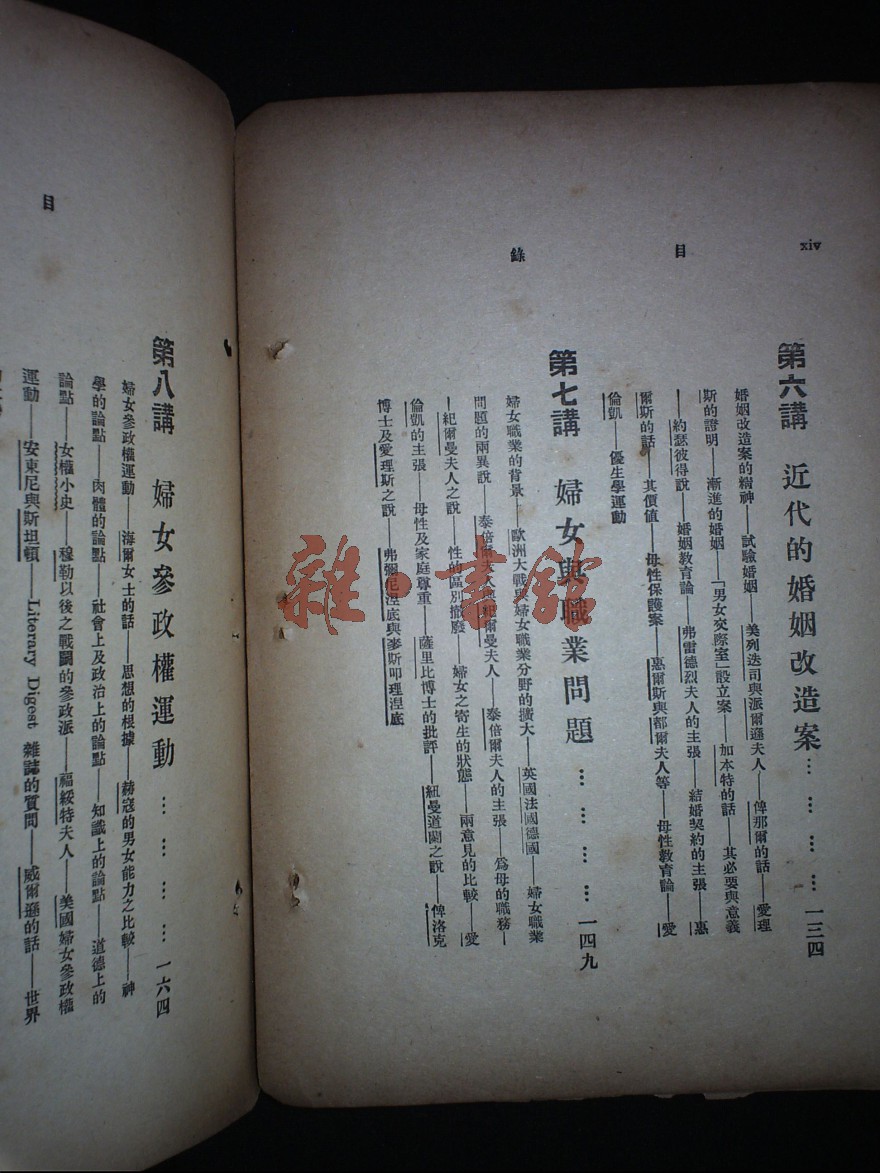 xiv
目 錄
第六講 近代的婚姻改造案… … … …一三四
婚姻改造案的精神——試驗婚姻——美列法司與派爾遜夫人——俾那爾的話——愛理
斯的證明——漸進的婚姻——「男女交際室」設立案——加本特的話——其必要與意義
——約瑟彼得說——婚姻教育論——弗雷德烈夫人的主張——結婚契約的主張——惠
爾斯的話——其價值——母性保護案——惠爾斯與都爾夫人等——母性教育論——愛
倫凱——優生學運動
第七講 婦女與職業問題… … … …一四九
婦女職業的背景——歐洲大戰與婦女職業分野的擴大——英國法國德國——婦女職業
問題的兩異說——泰倍爾夫人與紀爾曼夫人——泰倍爾夫人的主張——爲母的職務—
—紀爾曼夫人之說——性的區別撤廢——婦女之寄生的狀態——兩意見的比較——愛
倫凱的主張——母性及家庭尊重——薩里比博士的批評——紐曼道蘭之說——俾洛克
博士及愛理斯之說——弗彌尼涅底與麥斯叩理涅底
目
第八講 婦女參政權運動… … … …一六四
婦女參政權運動——海爾女士的話——思想的根據——赫寇的男女能力之比較——神
學的論點——肉體的論點——社會上及政治上的論點——知識上的論點——道德上的
論點——女權小史——穆勒以後之戰鬪的參政派——福綏特夫人——美國婦女參政權
運動——安東尼與斯坦頓——Literary Digest 雜誌的質問——威爾遜的話——世界
雜·書館